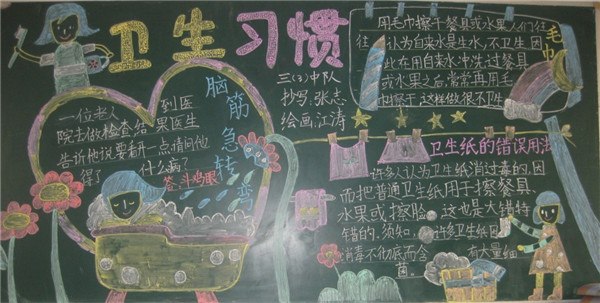 卫生习惯
三(3)中队
抄写:张志
绘画:江涛
脑筋急转弯
一位老人 到医
院去做检查结果医生
告诉他说要看开一点请问他
得了 什么病?
答:斗鸡眼
毛巾
用毛巾擦干餐具或水果人们往
往认为自来水是生水,不卫生因
此在用自来水冲洗过餐具
或水果之后,常常再用毛
巾擦干,这样做很不卫生
卫生纸的错误用法
许多人认为卫生纸消过毒的,因
而把普通卫生纸用于擦餐具
水果或擦脸。这也是大错特
错的,须知,许多卫生纸因
消毒不彻底而含 有大量细
菌。